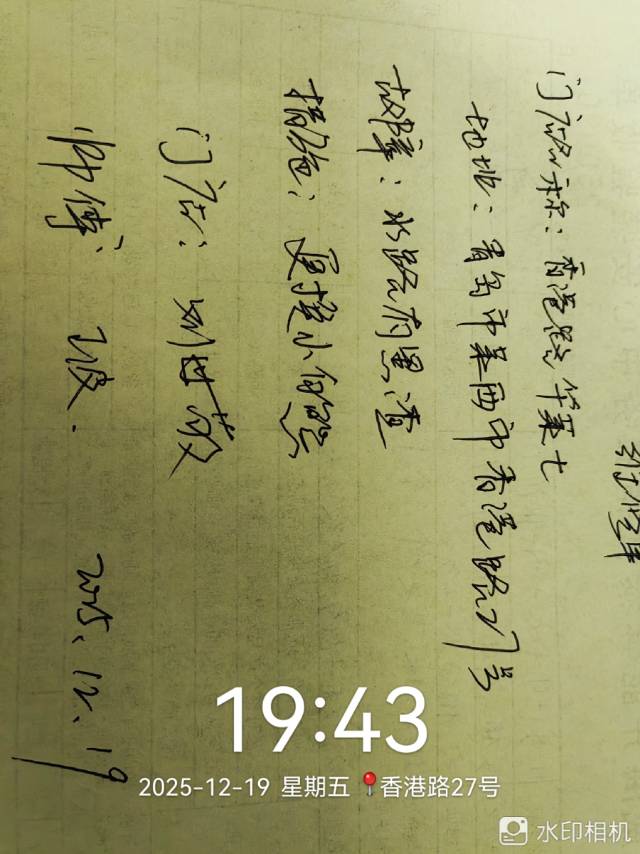 维修单
门店名称：香港路华莱士
地址：青岛市莱西市香港路27号
故障：水路有黑渣
措施：更换水
门店：
师傅：
2025、12、19
19:43
2025-12-19 星期五 香港路27号
水印相机